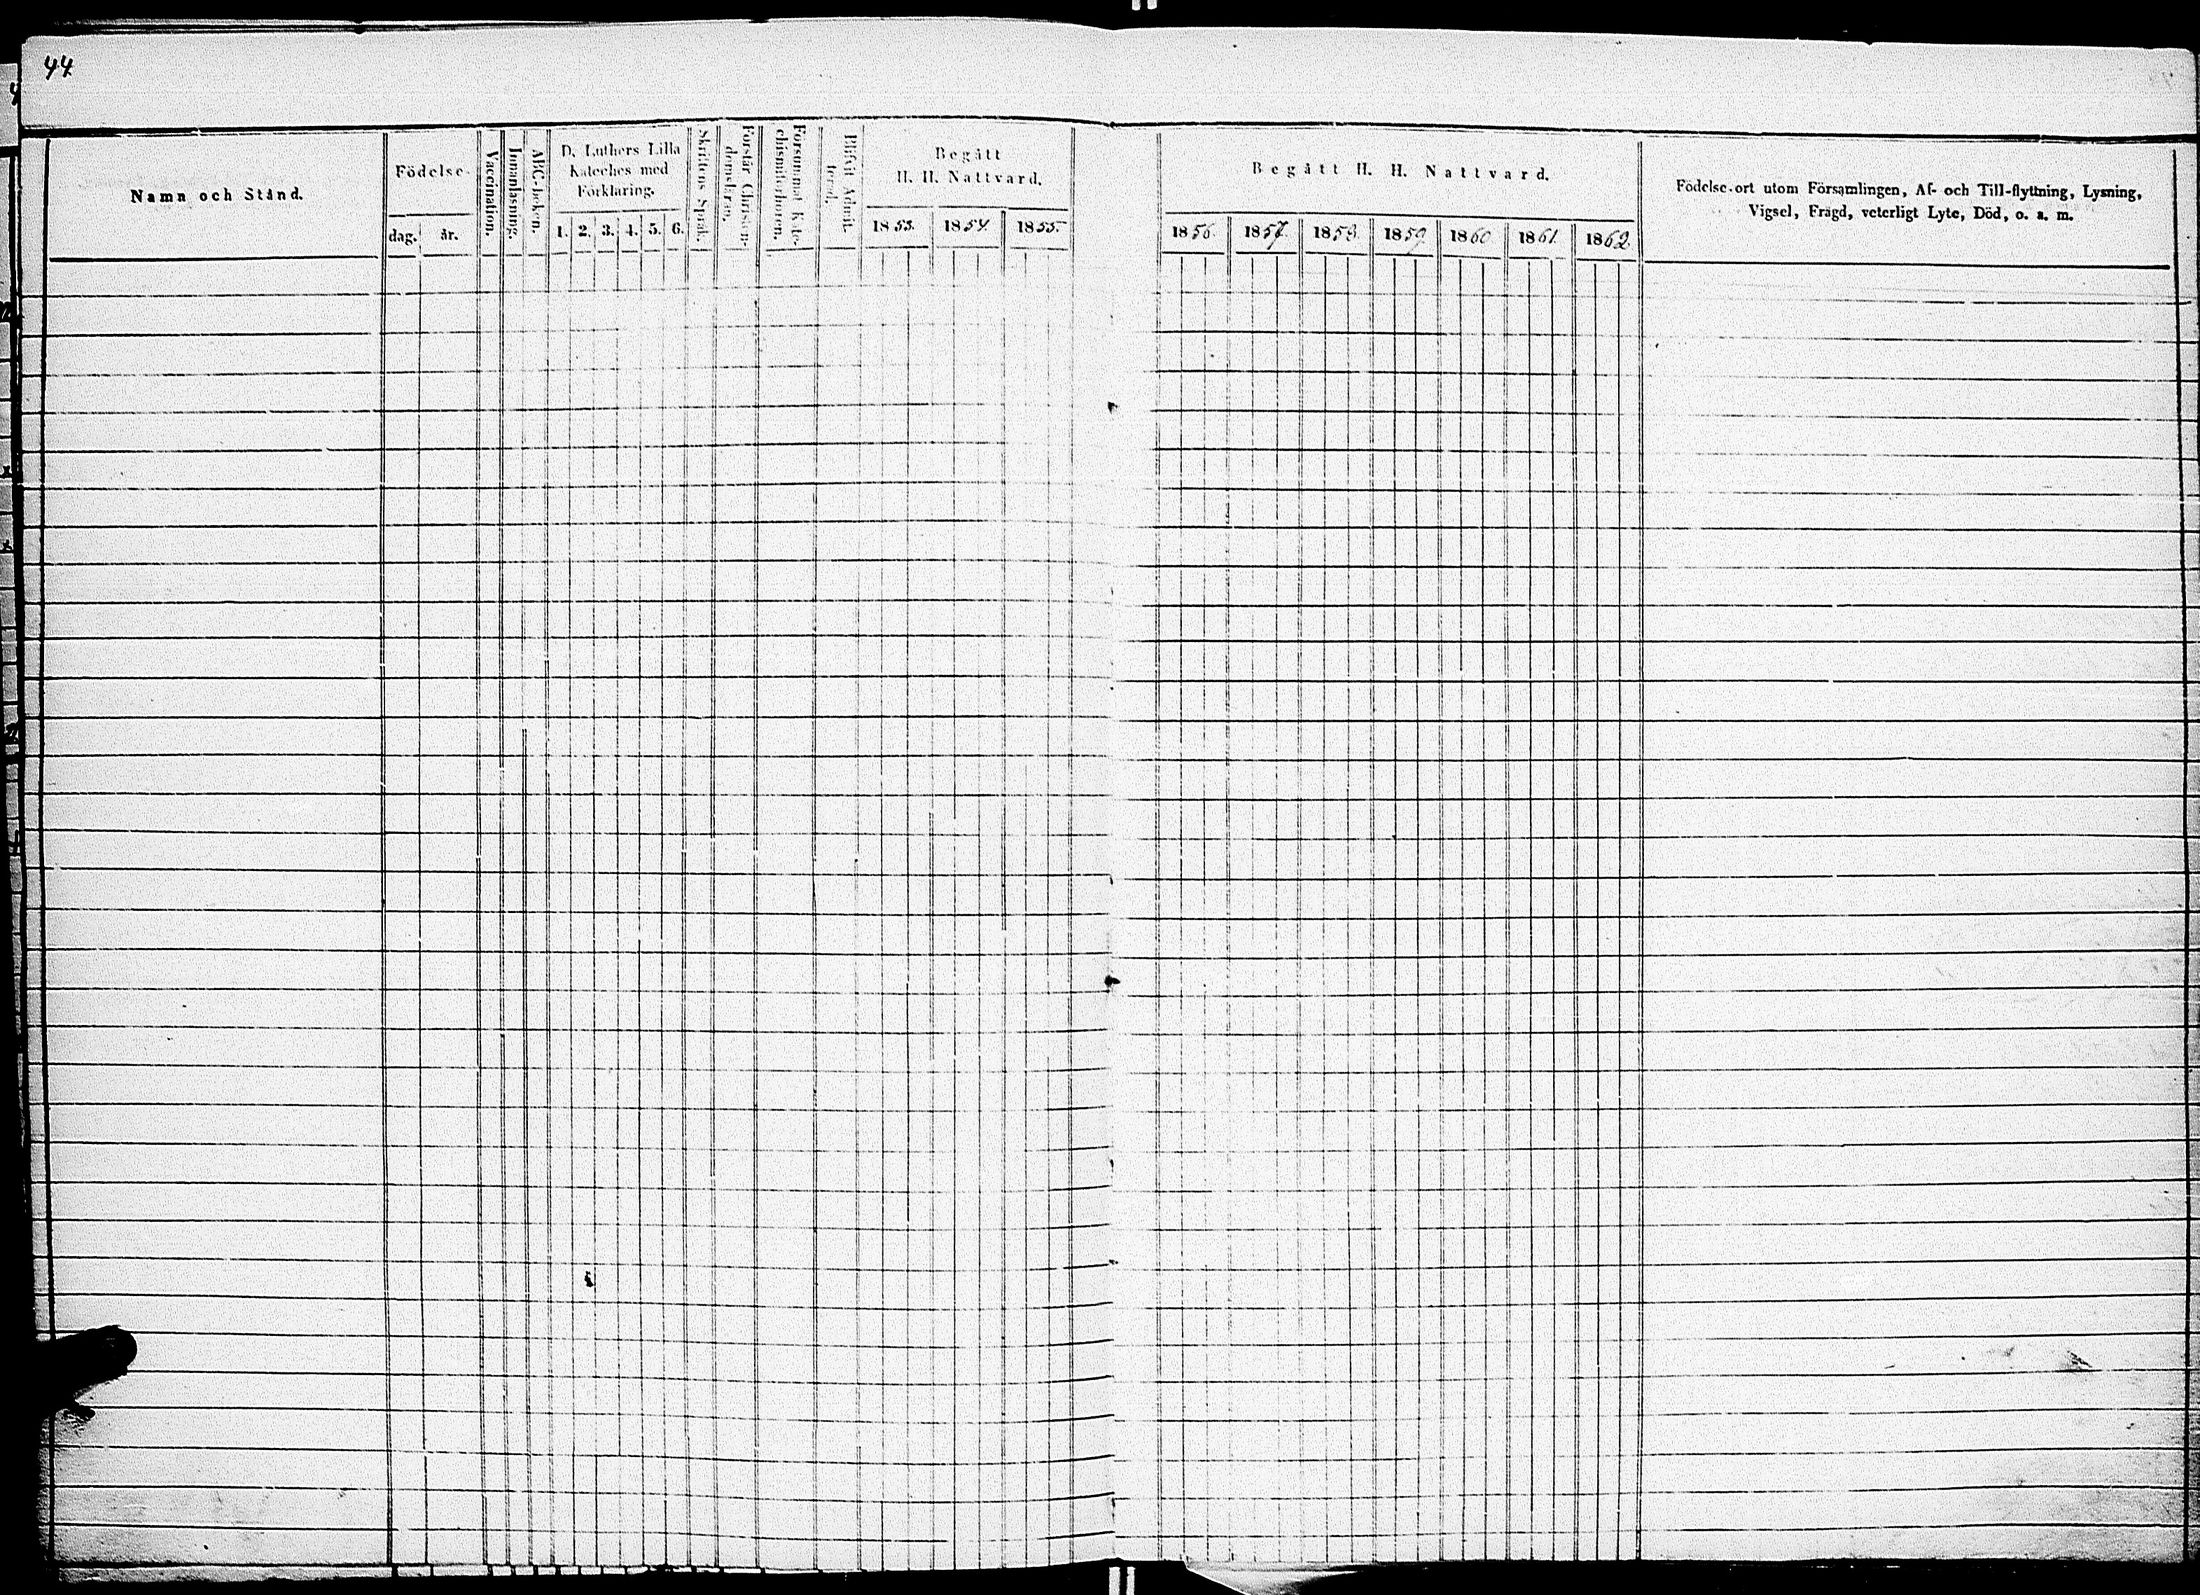 44
Namn och Stånd.
Födelse-
dag.
år.
Vaccination.
Innanläsning.
ABC-boken.
D. Luthers Lilla
Kateches med
Förklaring.
1. 2. 3. 4. 5. 6.
Skriftens Språk.
Förstår Christen-
domsläran.
Försummat Kate-
chismiförhören.
Blifvit Admit-
terad.
Begått
H. H. Nattvard.
1853. 1854. 1855.
Begått H. H. Nattvard.
1856. 1857. 1858. 1859. 1860 1861. 1862.
Födelse-ort utom Församlingen, Af- och Till-flyttning, Lysning,
Vigsel, Frägd, veterligt Lyte, Död, o. s. m.